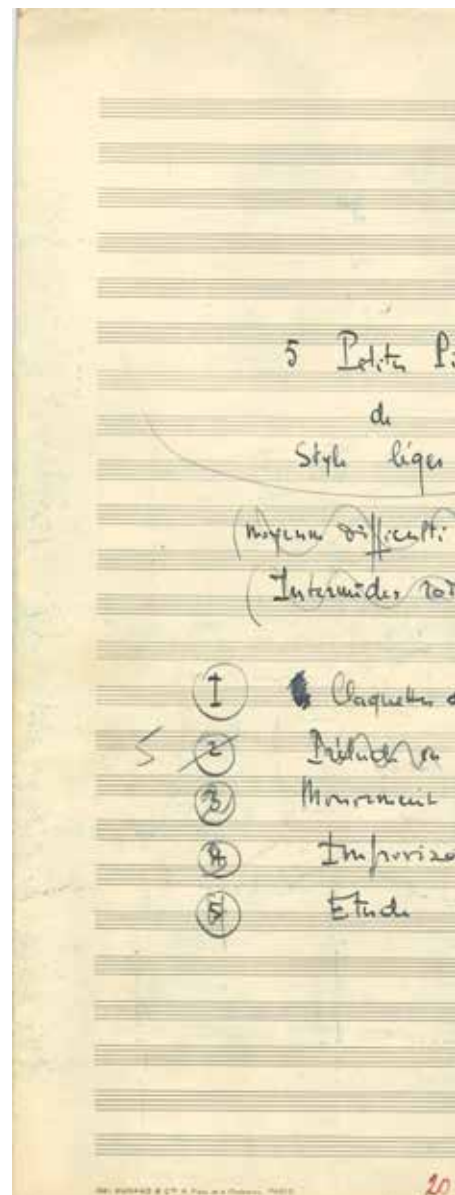 5 Petites Pi
de
Style léger
(moyenne difficulté
(Intermèdes
I Claquettes
5 2 Prélude ou
3 Mouvement
4 Improvisa
5 Etude
20